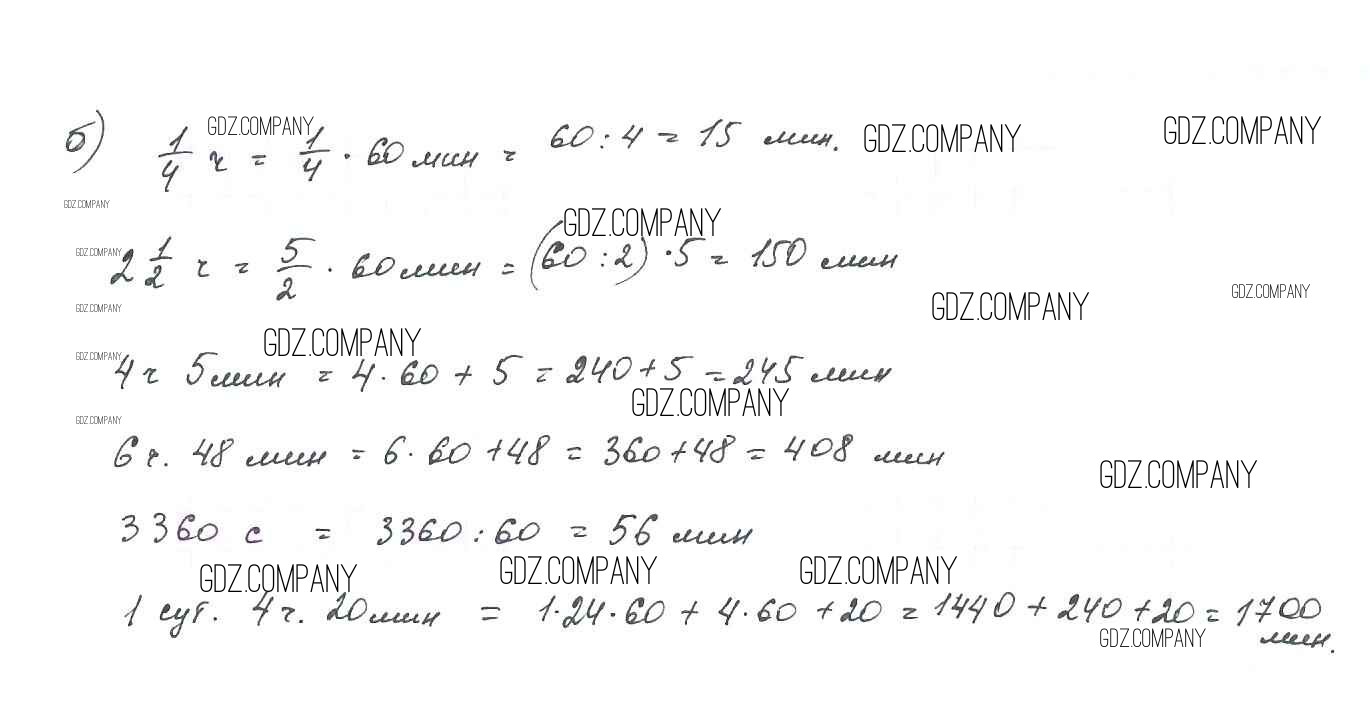 б) 1/4 ч = 1/4 · 60 мин = 60 : 4 = 15 мин. GDZ.COMPANY GDZ.COMPANY GDZ.COMPANY
GDZ.COMPANY GDZ.COMPANY
GDZ.COMPANY 2 1/2 ч = 5/2 · 60 мин = (60 : 2) · 5 = 150 мин
GDZ.COMPANY GDZ.COMPANY GDZ.COMPANY
GDZ.COMPANY
GDZ.COMPANY 4 ч 5 мин = 4 · 60 + 5 = 240 + 5 = 245 мин
GDZ.COMPANY GDZ.COMPANY
6 ч. 48 мин = 6 · 60 + 48 = 360 + 48 = 408 мин
GDZ.COMPANY
3360 с = 3360 : 60 = 56 мин
GDZ.COMPANY GDZ.COMPANY GDZ.COMPANY
1 сут. 4 ч. 20 мин = 1 · 24 · 60 + 4 · 60 + 20 = 1440 + 240 + 20 = 1700
GDZ.COMPANY мин.